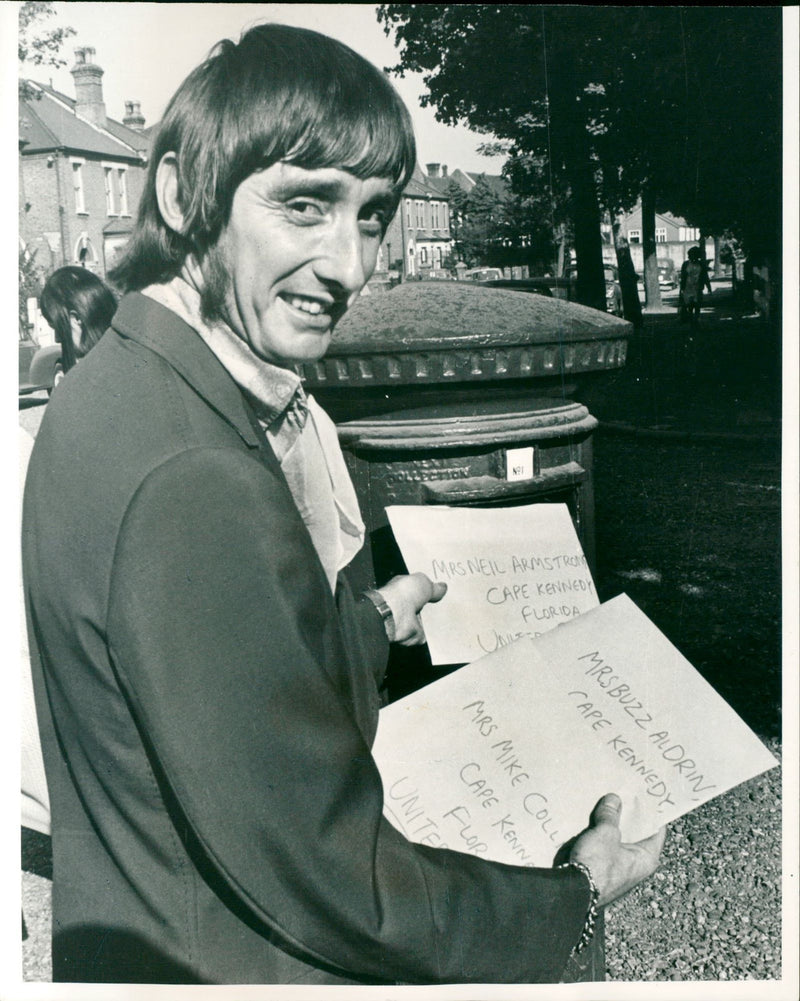 COLLECTION
Nº1
MRS NEIL ARMSTRON
CAPE KENNEDY
FLORIDA
UNITE
MRS BUZZ ALDRIN,
CAPE KENNEDY,
MRS MIKE COLL
CAPE KENNE
FLOR
UNITE